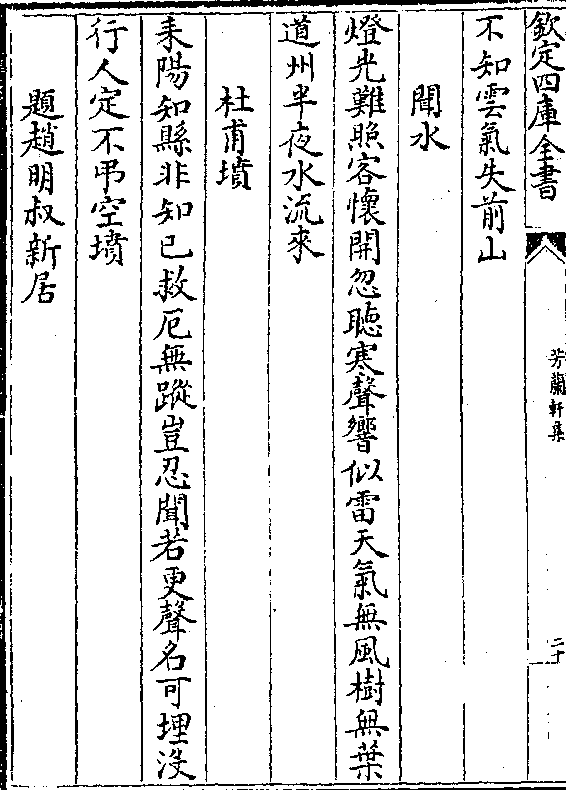 欽定四庫全書
芳蘭軒集
二十
不知雲氣失前山
聞水
燈光難照客懷開忽聽寒聲響似雷天氣無風樹無葉
道州半夜水流來
杜甫墳
耒陽知縣非知已救厄無蹤豈忍聞若更聲名可埋沒
行人定不弔空墳
題趙明叔新居